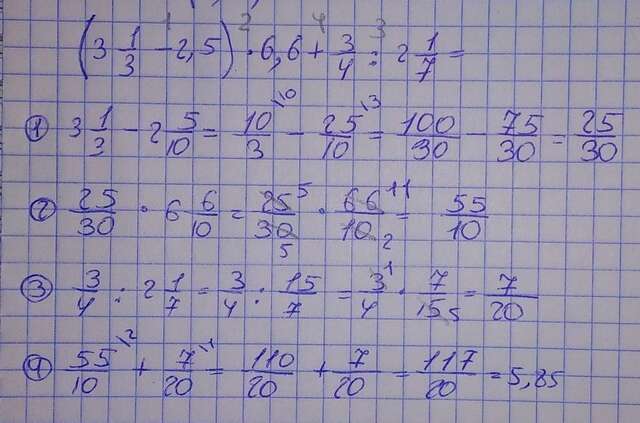 (3 1/3 - 2,5) · 6,6 + 3/4 : 2 1/7 =
1 2 4 3
① 3 1/3 - 2 5/10 = 10/3 \10 - 25/10 \3 = 100/30 - 75/30 = 25/30
② 25/30 · 6 6/10 = 25 5/30 5 · 66 11/10 2 = 55/10
③ 3/4 : 2 1/7 = 3/4 : 15/7 = 3 1/4 · 7/15 5 = 7/20
④ 55/10 \2 + 7/20 \1 = 110/20 + 7/20 = 117/20 = 5,85